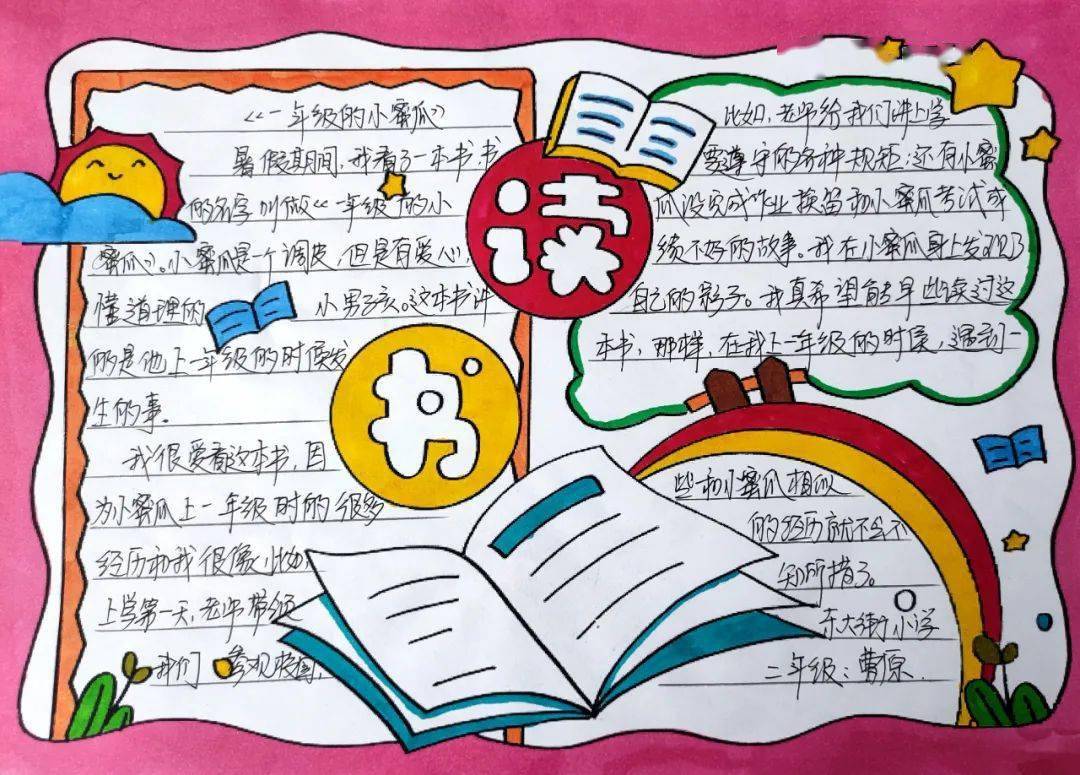 《一年级的小蜜瓜》
暑假期间,我看了一本书,书
的名字叫做《一年级的小
蜜瓜》。小蜜瓜是一个调皮,但是有爱心,
懂道理的小男子孩。这本书讲
的是他上一年级的时候发
生的事。
我很爱看这本书,因
为小蜜瓜上一年级时的很多
经历和我很像,比如,
上学第一天,老师带领
我们参观校园,
读
书
比如,老师给我们讲上学
要遵守的各种规矩;还有小蜜
瓜没完成作业挨留和小蜜瓜考试成
绩不好的故事。我在小蜜瓜身上发现了
自己的影子。我真希望能早些读过这
本书,那样,在我上一年级的时候,遇到一
些和小蜜瓜相似
的经历就不会不
知所措了。
东大街小学
二年级:曹原